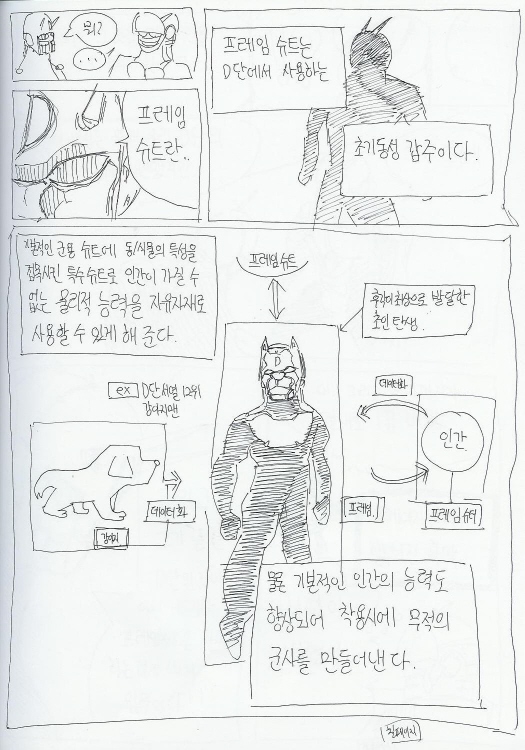 뭐?
...
프레임 슈트는
D단에서 사용하는
초기동성 갑주이다.
프레임
슈트란..
기본적인 군용 슈트에 동/식물의 특성을
접목시킨 특수슈트로 인간이 가질 수
없는 물리적 능력을 자유자재로
사용할 수 있게 해 준다.
프레임 슈트
후각이 최상으로 발달한
초인 탄생.
ex D단 서열 12위
강아지맨
데이터화
인간
프레임 슈터
프레임.
D
데이터화
강아지
물론 기본적인 인간의 능력도
향상되어 착용시에 무적의
군사를 만들어낸다.